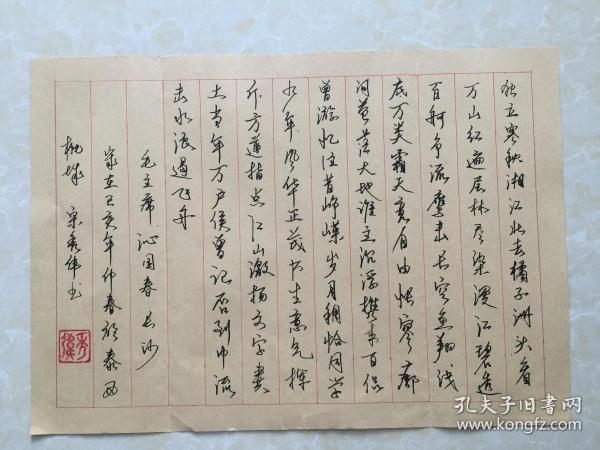 独立寒秋湘江北去橘子洲头看
万山红遍层林尽染漫江碧透
百舸争流鹰击长空鱼翔浅
底万类霜天竞自由怅寥廓
问苍茫大地谁主沉浮携来百侣
曾游忆往昔峥嵘岁月稠恰同学
少年风华正茂书生意气挥
斥方遒指点江山激扬文字粪
土当年万户侯曾记否到中流
击水浪遏飞舟
毛主席沁园春长沙
岁在己亥年仲春於泰西
桃城 宋秀伟书
孔夫子旧书网
www.kongfz.com